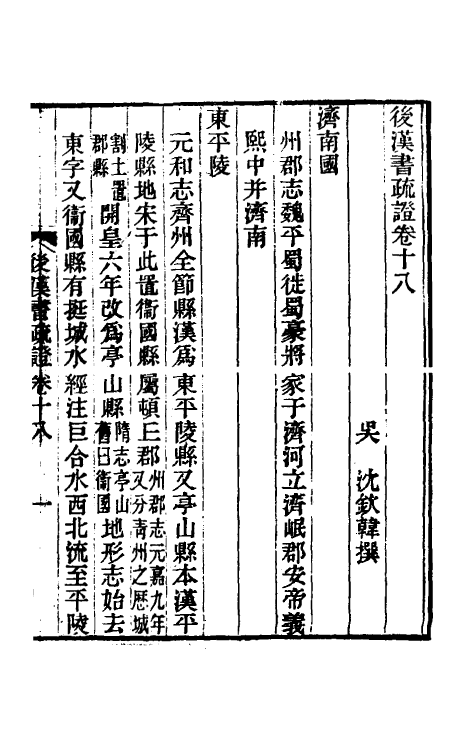 後漢書疏證卷十八
吳　沈欽韓撰
濟南國
州郡志魏平蜀徙蜀豪將家于濟河立濟岷郡安帝義
熙中并濟南
東平陵
元和志齊州全節縣漢爲東平陵縣又亭山縣本漢平
陵縣地宋于此置衞國縣屬頓丘郡州郡志元嘉九年又分青州之歷城
割土置郡縣開皇六年改爲亭山縣隋志亭山舊曰衞國地形志始去
東字又衞國縣有挺城水經注巨合水西北流至平陵
後漢書疏證　卷十八　一